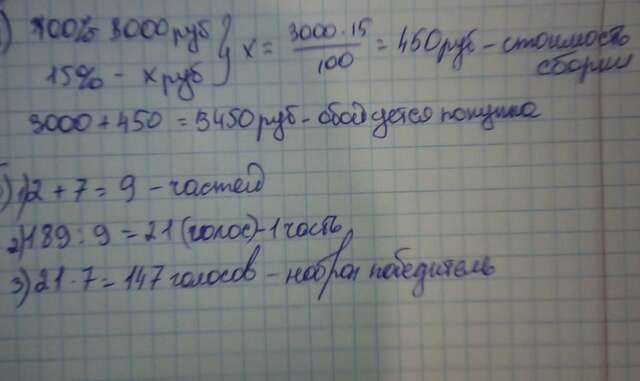 ) 100% 3000 руб } x = 3000 · 15 / 100 = 450 руб - стоимость
15% - x руб сборки
3000 + 450 = 3450 руб - обойдется покупка
) 1) 2 + 7 = 9 - частей
2) 189 : 9 = 21 (голос) - 1 часть
3) 21 · 7 = 147 голосов - набрал победитель